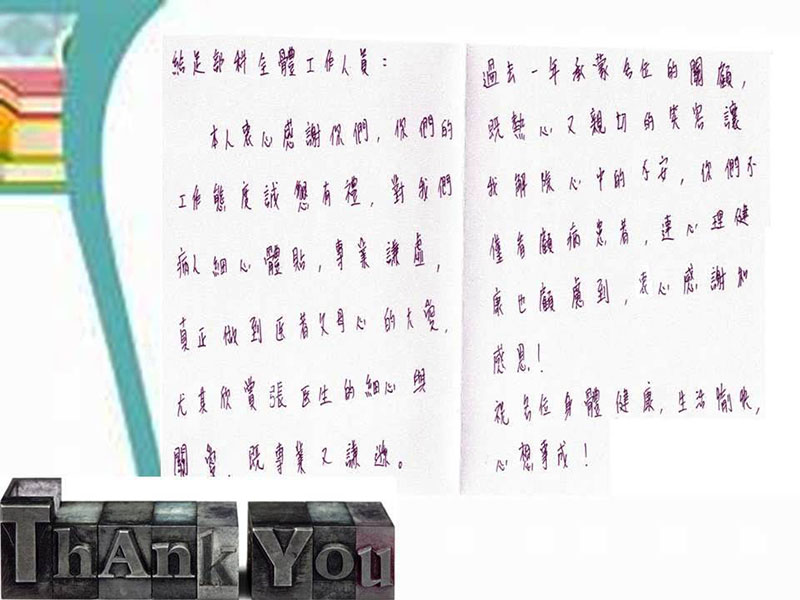 給足部科全體工作人員：
本人衷心感謝你們，你們的
工作態度誠懇有禮，對我們
病人細心體貼，專業謙虛，
真正做到医者父母心的大愛，
尤其欣賞張医生的細心與
關愛，既專業又謙遜。
過去一年承蒙各位的關顧，
既熱心又親切的笑容讓
我解除心中的不安，你們不
僅看顧病患者，連心理健
康也顧慮到，衷心感謝和
感恩！
祝各位身體健康，生活愉快，
心想事成！
Thank You